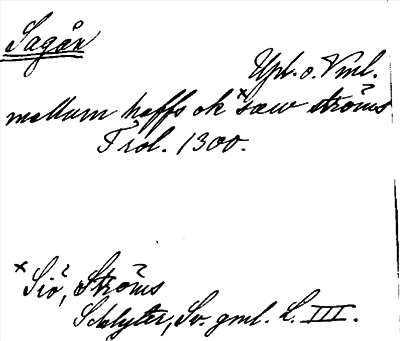 Sagån
Upl. o. Vml.
mellum haffs ok ˣsæw ströms
Frol. 1300.
ˣSiö, Ströms
Schlyter, Sv. gml. L. III.